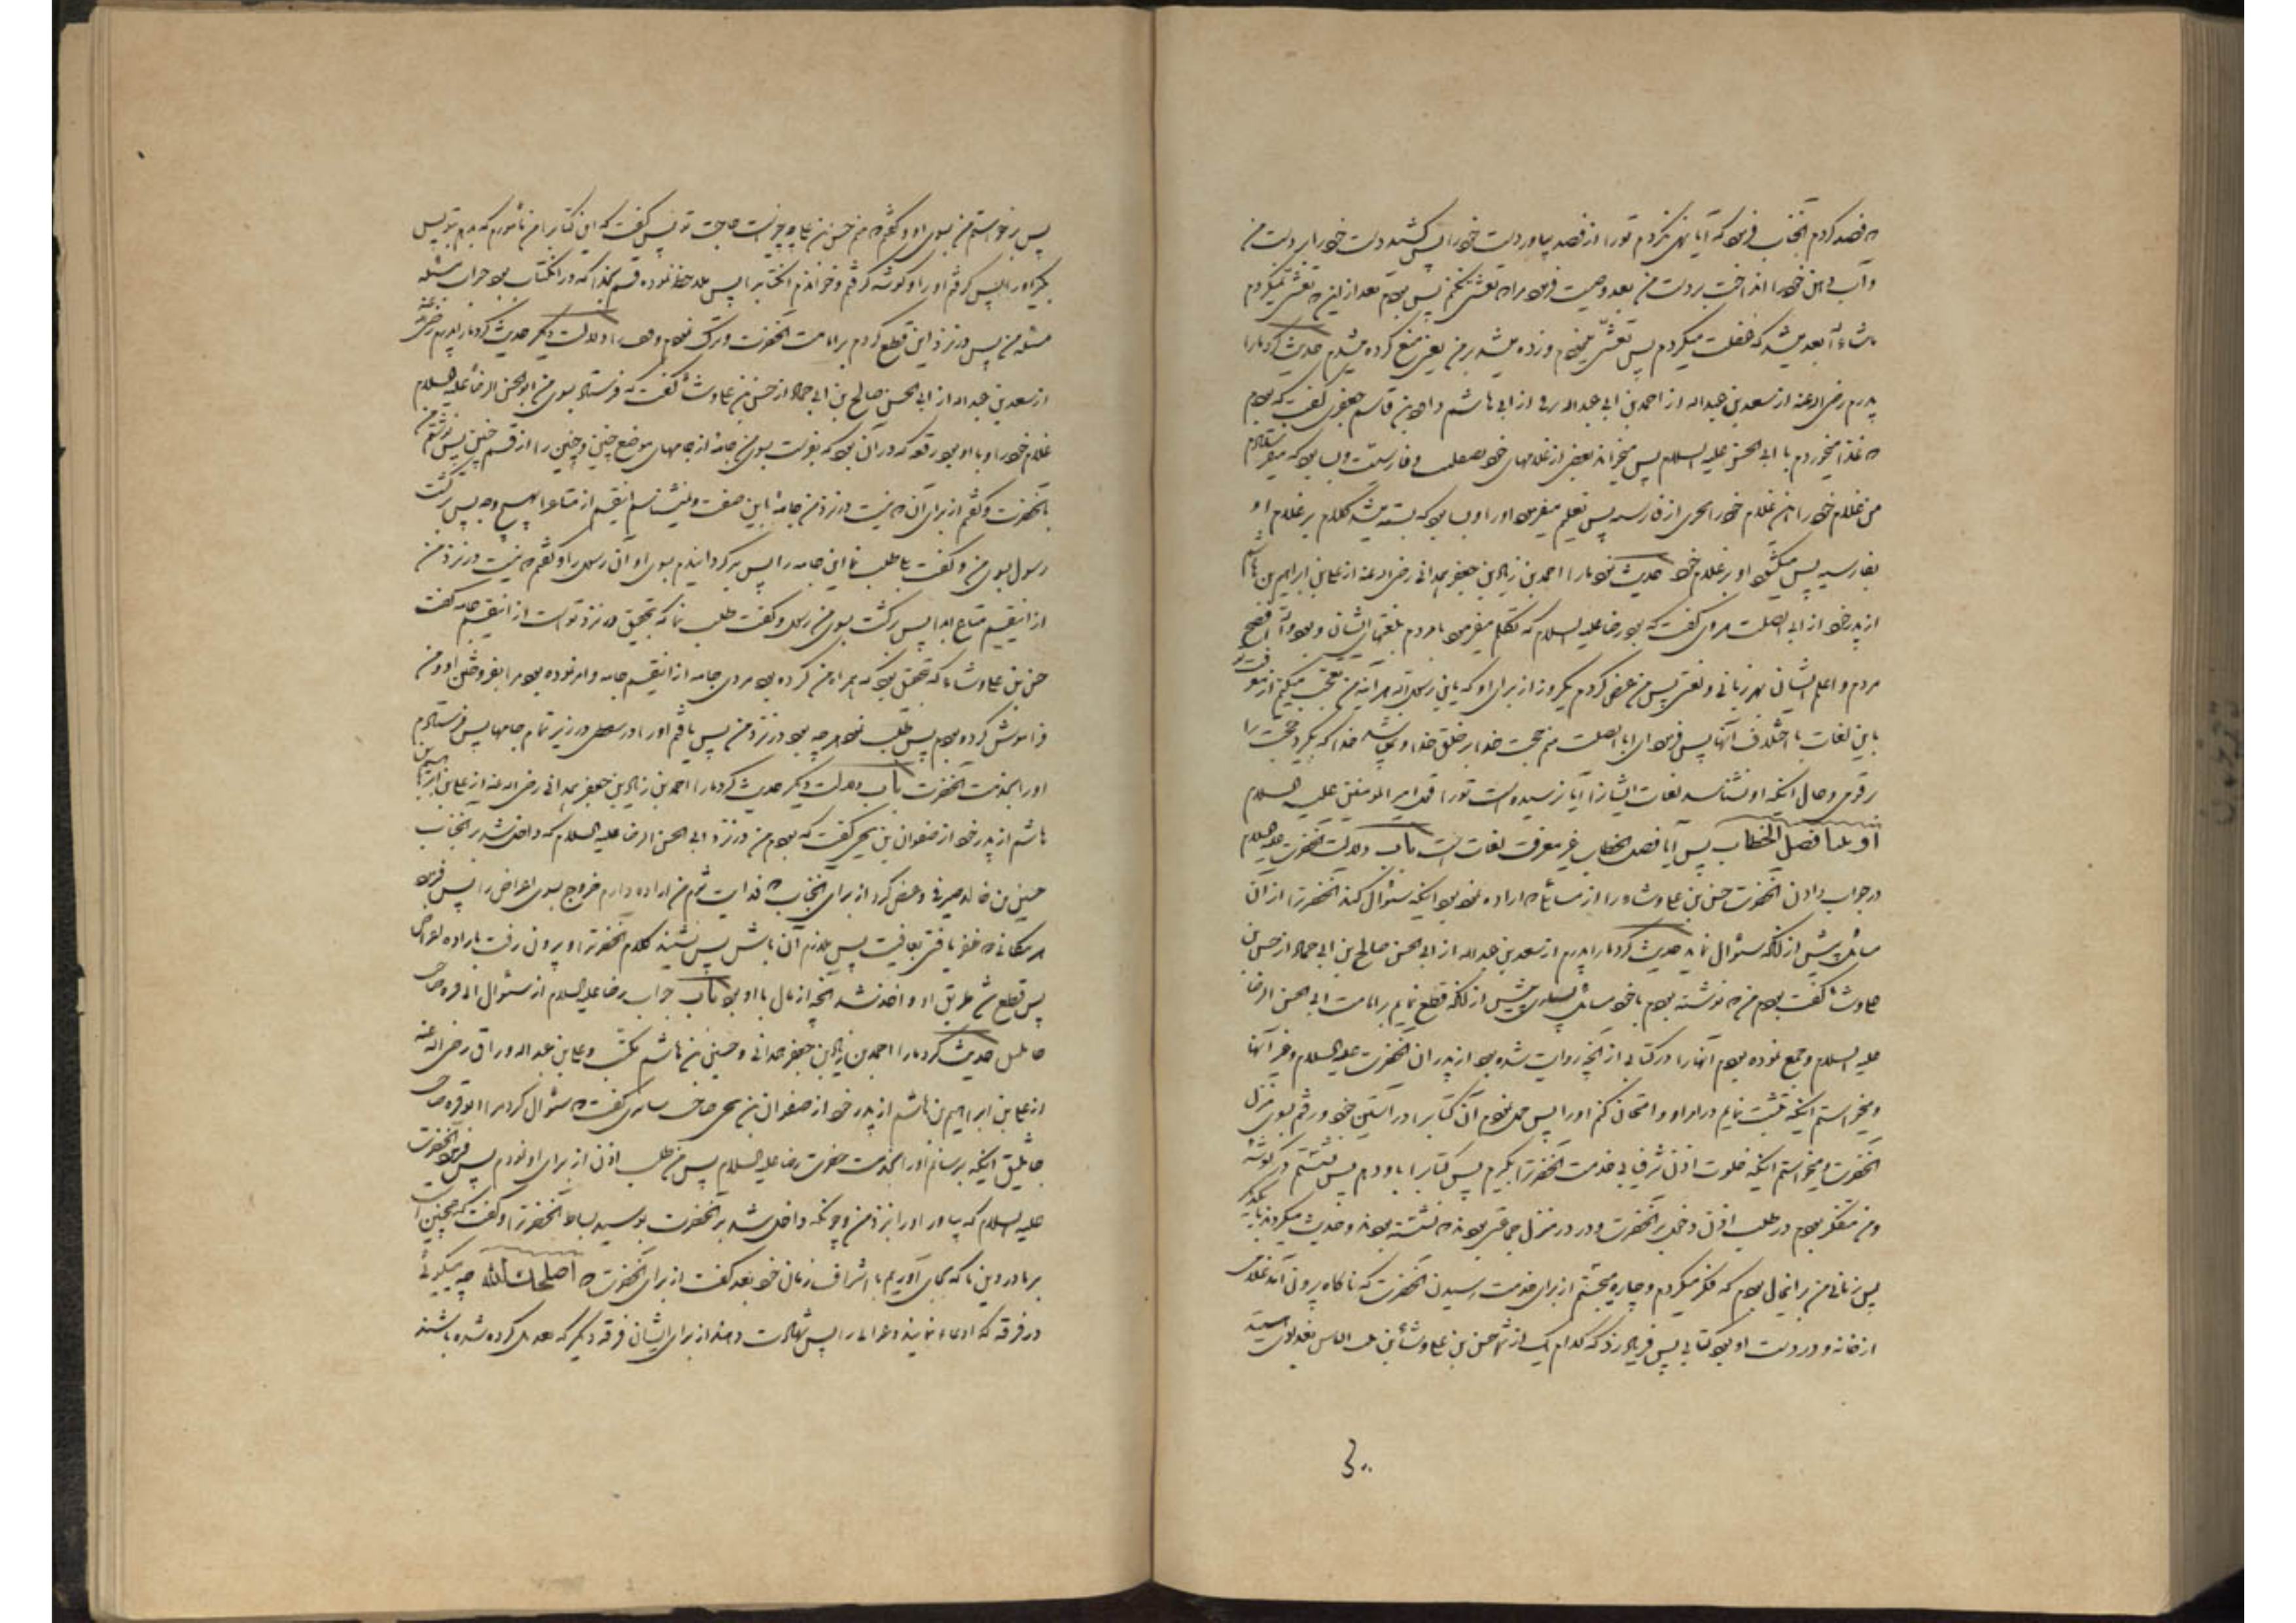 که فصد کردم آنجناب فرمود که آیا نهی نکردم تو را از فصد بیاور دست خود را پس کشید دست خود را بر دست من
و آب دهن خود را انداخت بر دست من بعد وصیت فرمود مرا که تعشی نکنم پس بودم بعد از این که تعشی نمیکردم
ماشاءالله بعد میشد که غفلت میکردم پس تعشی مینمودم و زده میشد بر من یعنی منع کرده میشدم حدیث کرد ما را
پدرم رضی الله عنه از سعد بن عبدالله از احمد بن ابی عبدالله برقی از ابی هاشم داود بن قاسم جعفری گفت که بودم
که غذا میخوردم با ابی الحسن علیه السلام پس میخواند بعضی از غلامهای خود بصقلبیه و فارسیت و بسا بود که میفرستادم
من غلام خود را این غلام خود را بچیزی از فارسیه پس تعلم میفرمود او را و بسا بود که بسته میشد کلام بر غلام او
بفارسیه پس میگشود او بر غلام خود حدیث نمود ما را احمد بن زیاد بن جعفر همدانی رضی الله عنه از علی بن ابراهیم بن هاشم
از پدر خود از ابی الصلت هروی گفت که بود رضا علیه السلام که تکلم میفرمود با مردم بلغتهای ایشان و بود والله افصح
مردم و اعلم ایشان بهر زبانی و لغتی پس من عرض کردم یکروز از برای او که یابن رسول الله هر آینه من تعجب میکنم از معرفت تو
باین لغات با اختلاف آنها پس فرمود ای ابا الصلت منم حجت خدا بر خلق خدا و نمیباشد خدا که بگیرد حجت را
بر قومی و حال اینکه او نشناسد لغات ایشانرا آیا نرسیده است تو را قول امیر المومنین علیه السلام
اوتینا فصل الخطاب پس آیا فصل الخطاب غیر معرفت لغات است باب دلالت آنحضرت علیه السلام
در جواب دادن آنحضرت حسن بن علی وشاء را از مسائلی که اراده نموده بود اینکه سئوال کند آنحضرترا از آن
مسائل پیش از آنکه سئوال نماید حدیث کرد ما را پدرم از سعد بن عبدالله از ابی الحسن صالح بن ابی حماد از حسن بن
علی وشاء گفت بودم من که نوشته بودم با خود مسائل بسیاری پیش از آنکه قطع نمایم بر امامت ابی الحسن الرضا
علیه السلام و جمع نموده بودم آنها را در کتابی از آنچه روایت شده بود از پدران آنحضرت علیه السلام و غیر آنها
و میخواستم اینکه تثبت نمایم در امر او و امتحان کنم او را پس حمل نمودم آن کتاب را در آستین خود و رفتم بسوی منزل
آنحضرت و میخواستم اینکه خلوت از شرفیابی خدمت آنحضرترا بگیرم پس کتاب را باو دهم پس نشستم در گوشه
و من متفکر بودم در طلب اذن دخول بر آنحضرت و در در منزل جماعتی بودند که نشسته بودند و حدیث میکردند با یکدیگر
پس زمانی من بر اینحال بودم که فکر میکردم و چاره میجستم از برای خدمت رسیدن آنحضرت که ناگاه بیرون آمد غلامی
از خانه و در دست او بود کتابی پس فریاد زد که کدام یک از شما حسن بن علی وشاء ابن بنت الیاس بغدادی هستید
۳۰۰
پس برخواستم من بسوی او و گفتم که منم حسن بن علی و چیست حاجت تو پس گفت که این کتاب را من مأمورم که بدهم بتو پس
بگیر او را پس گرفتم او را و گوشه گرفتم و خواندم آن کتاب را پس ملاحظه نموده قسم بخدا که در آنکتاب بود جواب مسئله
مسئله من پس در نزد این قطع کردم بر امامت آنحضرت و ترک نمودم وقف را دلالت دیگر حدیث کرد ما را پدرم رضی الله عنه
از سعد بن عبدالله از ابی الحسن صالح بن ابی حماد از حسن بن علی وشاء گفت که فرستاد بسوی من ابو الحسن الرضا علیه السلام
غلام خود را و با او بود رقعه که در آن بود که بفرست بسوی من جامه از جامهای موضع چنین و چنین را از قسم چنین پس نوشتم من
بآنحضرت و گفتم از برای آن که نیست در نزد من جامه باین صفت و نمیشناسم اینقسم از متاع را بهیچ وجه پس برگشت
رسول بسوی من و گفت بلی طلب نما این جامه را پس برگردانیدم بسوی او آن رسول را و گفتم که نیست در نزد من
از اینقسم متاع ابدا پس برگشت بسوی من رسول و گفت طلب نما که بتحقیق در نزد تو است از اینقسم جامه گفت
حسن بن علی وشاء که بتحقیق بود که همراه من کرده بود مردی جامه از اینقسم جامه و امر نموده بود مرا بفروختن او و من
فراموش کرده بودم پس طلب نمودم هر چه بود در نزد من پس یافتم او را در سفطی در زیر تمام جامها پس فرستادم
او را بخدمت آنحضرت باب دلالت دیگر حدیث کرد ما را احمد بن زیاد بن جعفر همدانی رضی الله عنه از علی بن ابراهیم بن
هاشم از پدر خود از صفوان بن یحیی گفت که بودم من در نزد ابی الحسن الرضا علیه السلام که داخل شد بر آنجناب
حسین بن خالد صیرفی و عرض کرد از برای آنجناب که فدایت شوم من اراده دارم خروج بسوی اعراض را پس فرمود
هر مکانی که ظفر یافتی بعافیت پس ملازم آن باش پس نشنید کلام آنحضرترا و بیرون رفت باراده اعراض
پس قطع شد طریق او و اخذ شد آنچه از مال با او بود باب جواب رضا علیه السلام از سئوال ابی قره صاحب
جاثلیق حدیث کرد ما را احمد بن زیاد بن جعفر همدانی و حسین بن ابراهیم بن هاشم مکتب و علی بن عبدالله وراق رضی الله عنه
از علی بن ابراهیم بن هاشم از پدر خود از صفوان بن یحیی صاحب سابری گفت که سئوال کرد مرا ابو قره صاحب
جاثلیق اینکه برسانم او را بخدمت حضرت رضا علیه السلام پس من طلب اذن از برای او نمودم پس فرمود آنحضرت
علیه السلام که بیاور او را بنزد من و چونکه داخل شد بر آنحضرت بوسید بساط آنحضرترا و گفت که همچنین است
بر ما در دین ما که بجای آوریم با اشراف زمان خود بعد گفت از برای آنحضرت که اصلحک الله چه میگوئی
در فرقه که ادعاء نمایند دعوائی را پس شهادت دهند از برای ایشان فرقه دیگر که تعدیل کرده شده باشند